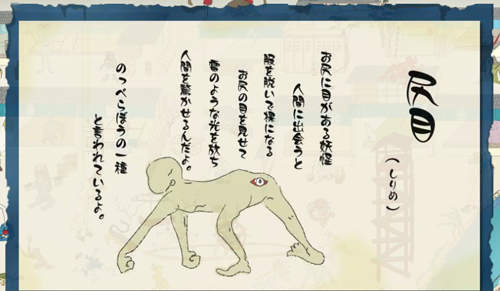 尻目
(しりめ)
お尻に目がある妖怪
人間に出会うと
服を脱いで裸になる
お尻の目を見せて
雷のような光を放ち
人間を驚かせるんだよ。
のっぺらぼうの一種
と言われているよ。